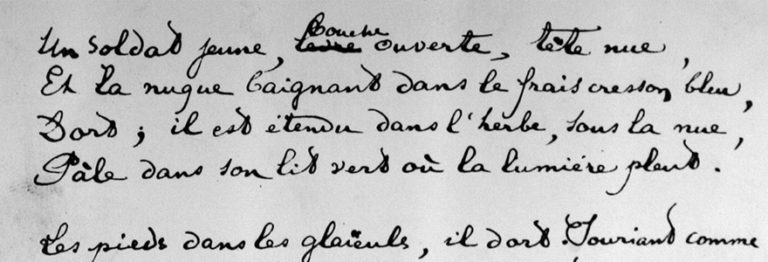 Un soldat jeune, lèvre bouche ouverte, tête nue,
Et la nuque baignant dans le frais cresson bleu,
Dort ; il est étendu dans l'herbe, sous la nue,
Pâle dans son lit vert où la lumière pleut.
Les pieds dans les glaïeuls, il dort. Souriant comme